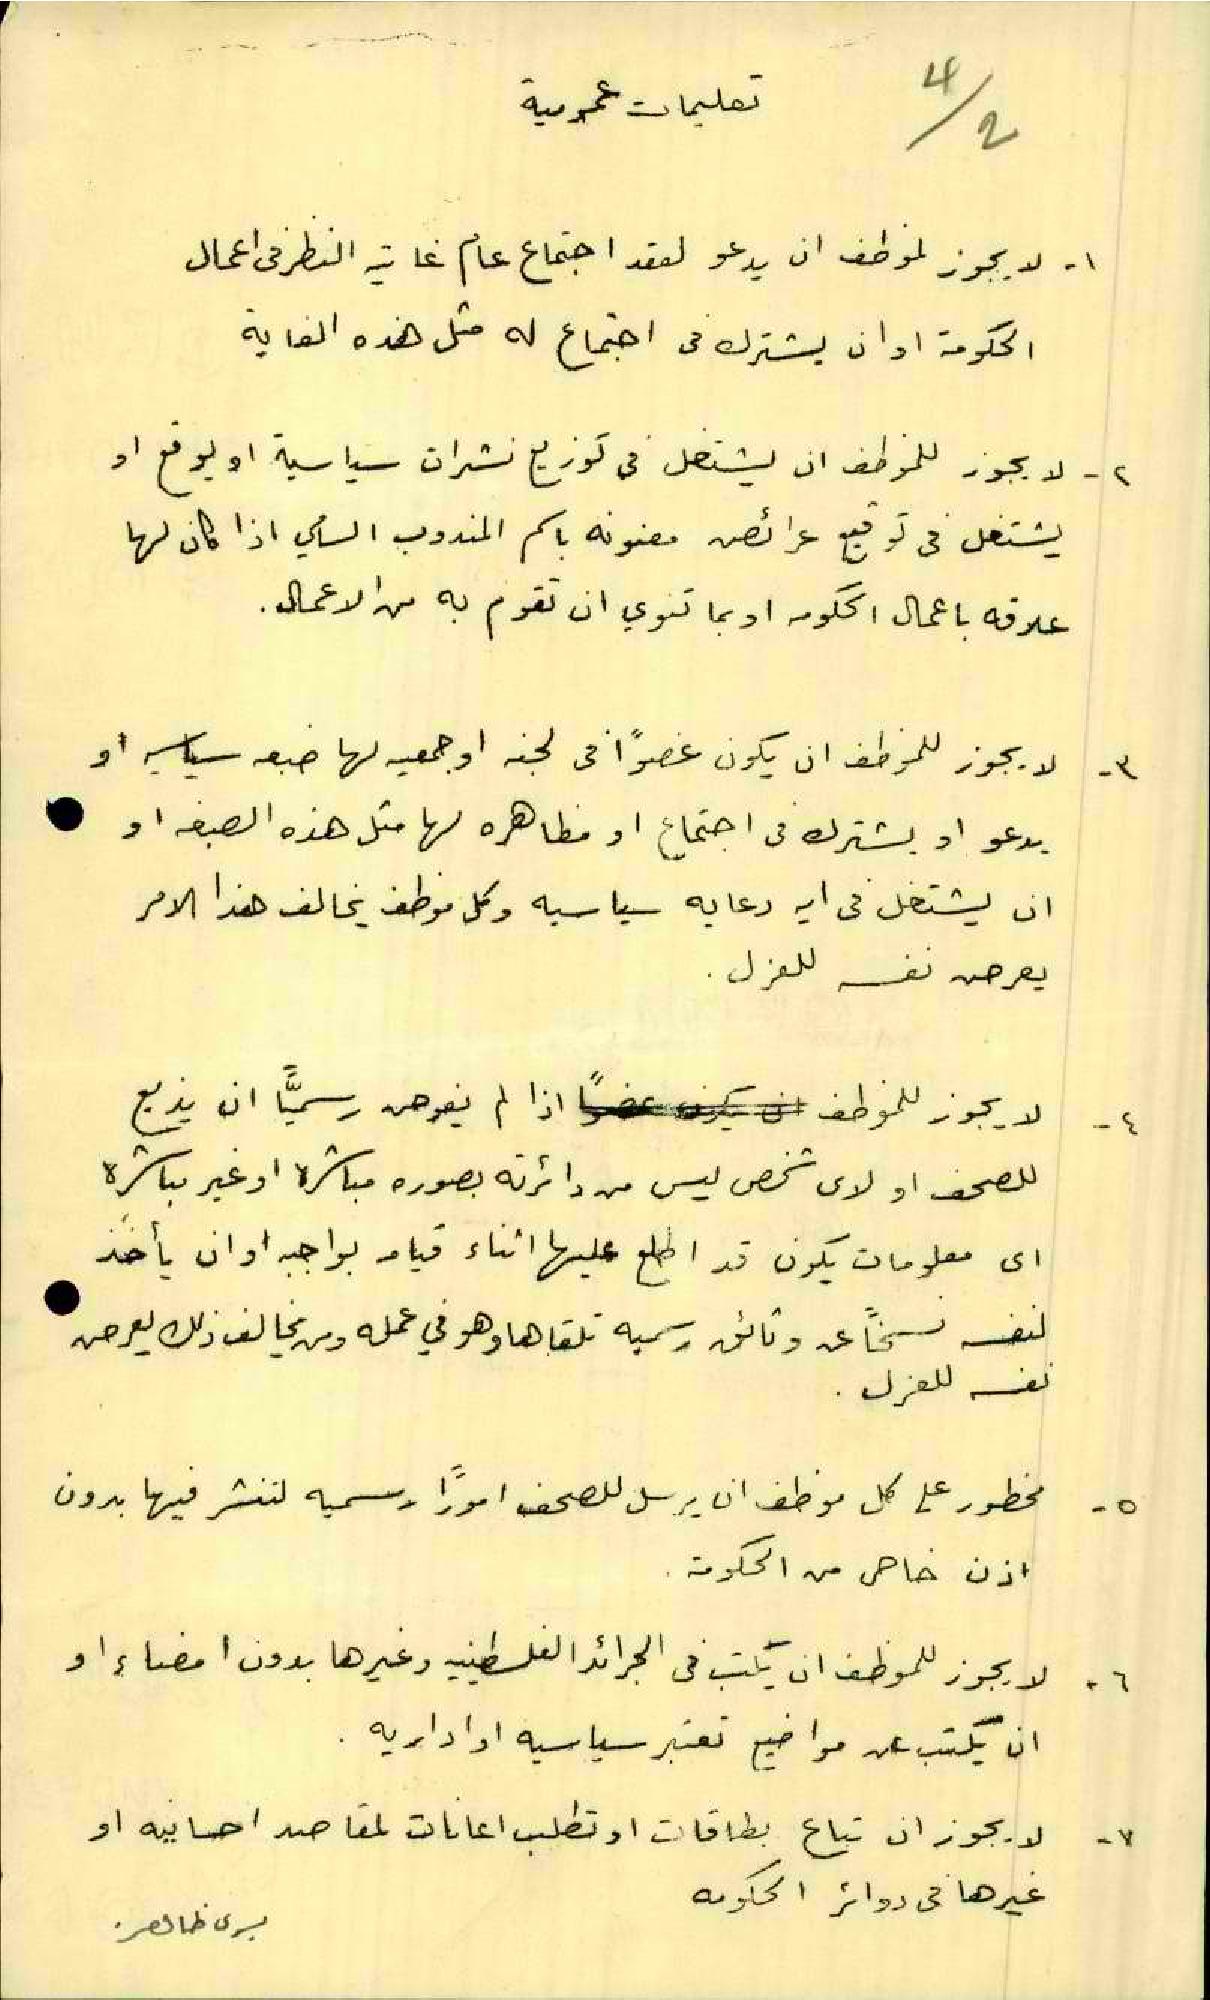 4/2
تعليمات عمومية
١- لا يجوز لموظف ان يدعو لعقد اجتماع عام غايته النظر في اعمال
الحكومة او ان يشترك في اجتماع له مثل هذه الغاية
٢- لا يجوز للموظف ان يشتغل في توزيع نشرات سياسية او يوقع او
يشتغل في توقيع عرائض معنونه باسم المندوب السامي اذا كان لها
علاقه باعمال الحكومه او بما تنوي ان تقوم به من الاعمال.
٣- لا يجوز للموظف ان يكون عضوًا في لجنه او جمعيه لها صبغه سياسيه او
يدعو او يشترك في اجتماع او مظاهره لها مثل هذه الصبغه او
ان يشتغل في ايه دعايه سياسيه وكل موظف يخالف هذا الامر
يعرض نفسه للعزل.
٤- لا يجوز للموظف ان يكون عضوًا اذا لم يفوض رسميًّا ان يذيع
للصحف او لاى شخص ليس من دائرته بصوره مباشرة او غير مباشرة
اى معلومات يكون قد اطلع عليها اثناء قيامه بواجبه او ان يأخذ
لنفسه نسخًا عن وثائق رسميه تلقاها وهو في عمله ومن يخالف ذلك يعرض
نفسه للعزل.
٥- محظور على كل موظف ان يرسل للصحف امورًا رسميه لتنشر فيها بدون
اذن خاص من الحكومة.
٦- لا يجوز للموظف ان يكتب في الجرائد الفلسطينيه وغيرها بدون امضاء او
ان يكتب عن مواضيع تعتبر سياسيه او اداريه.
٧- لا يجوز ان تباع بطاقات او تطلب اعانات لمقاصد احسانيه او
غيرها في دوائر الحكومه